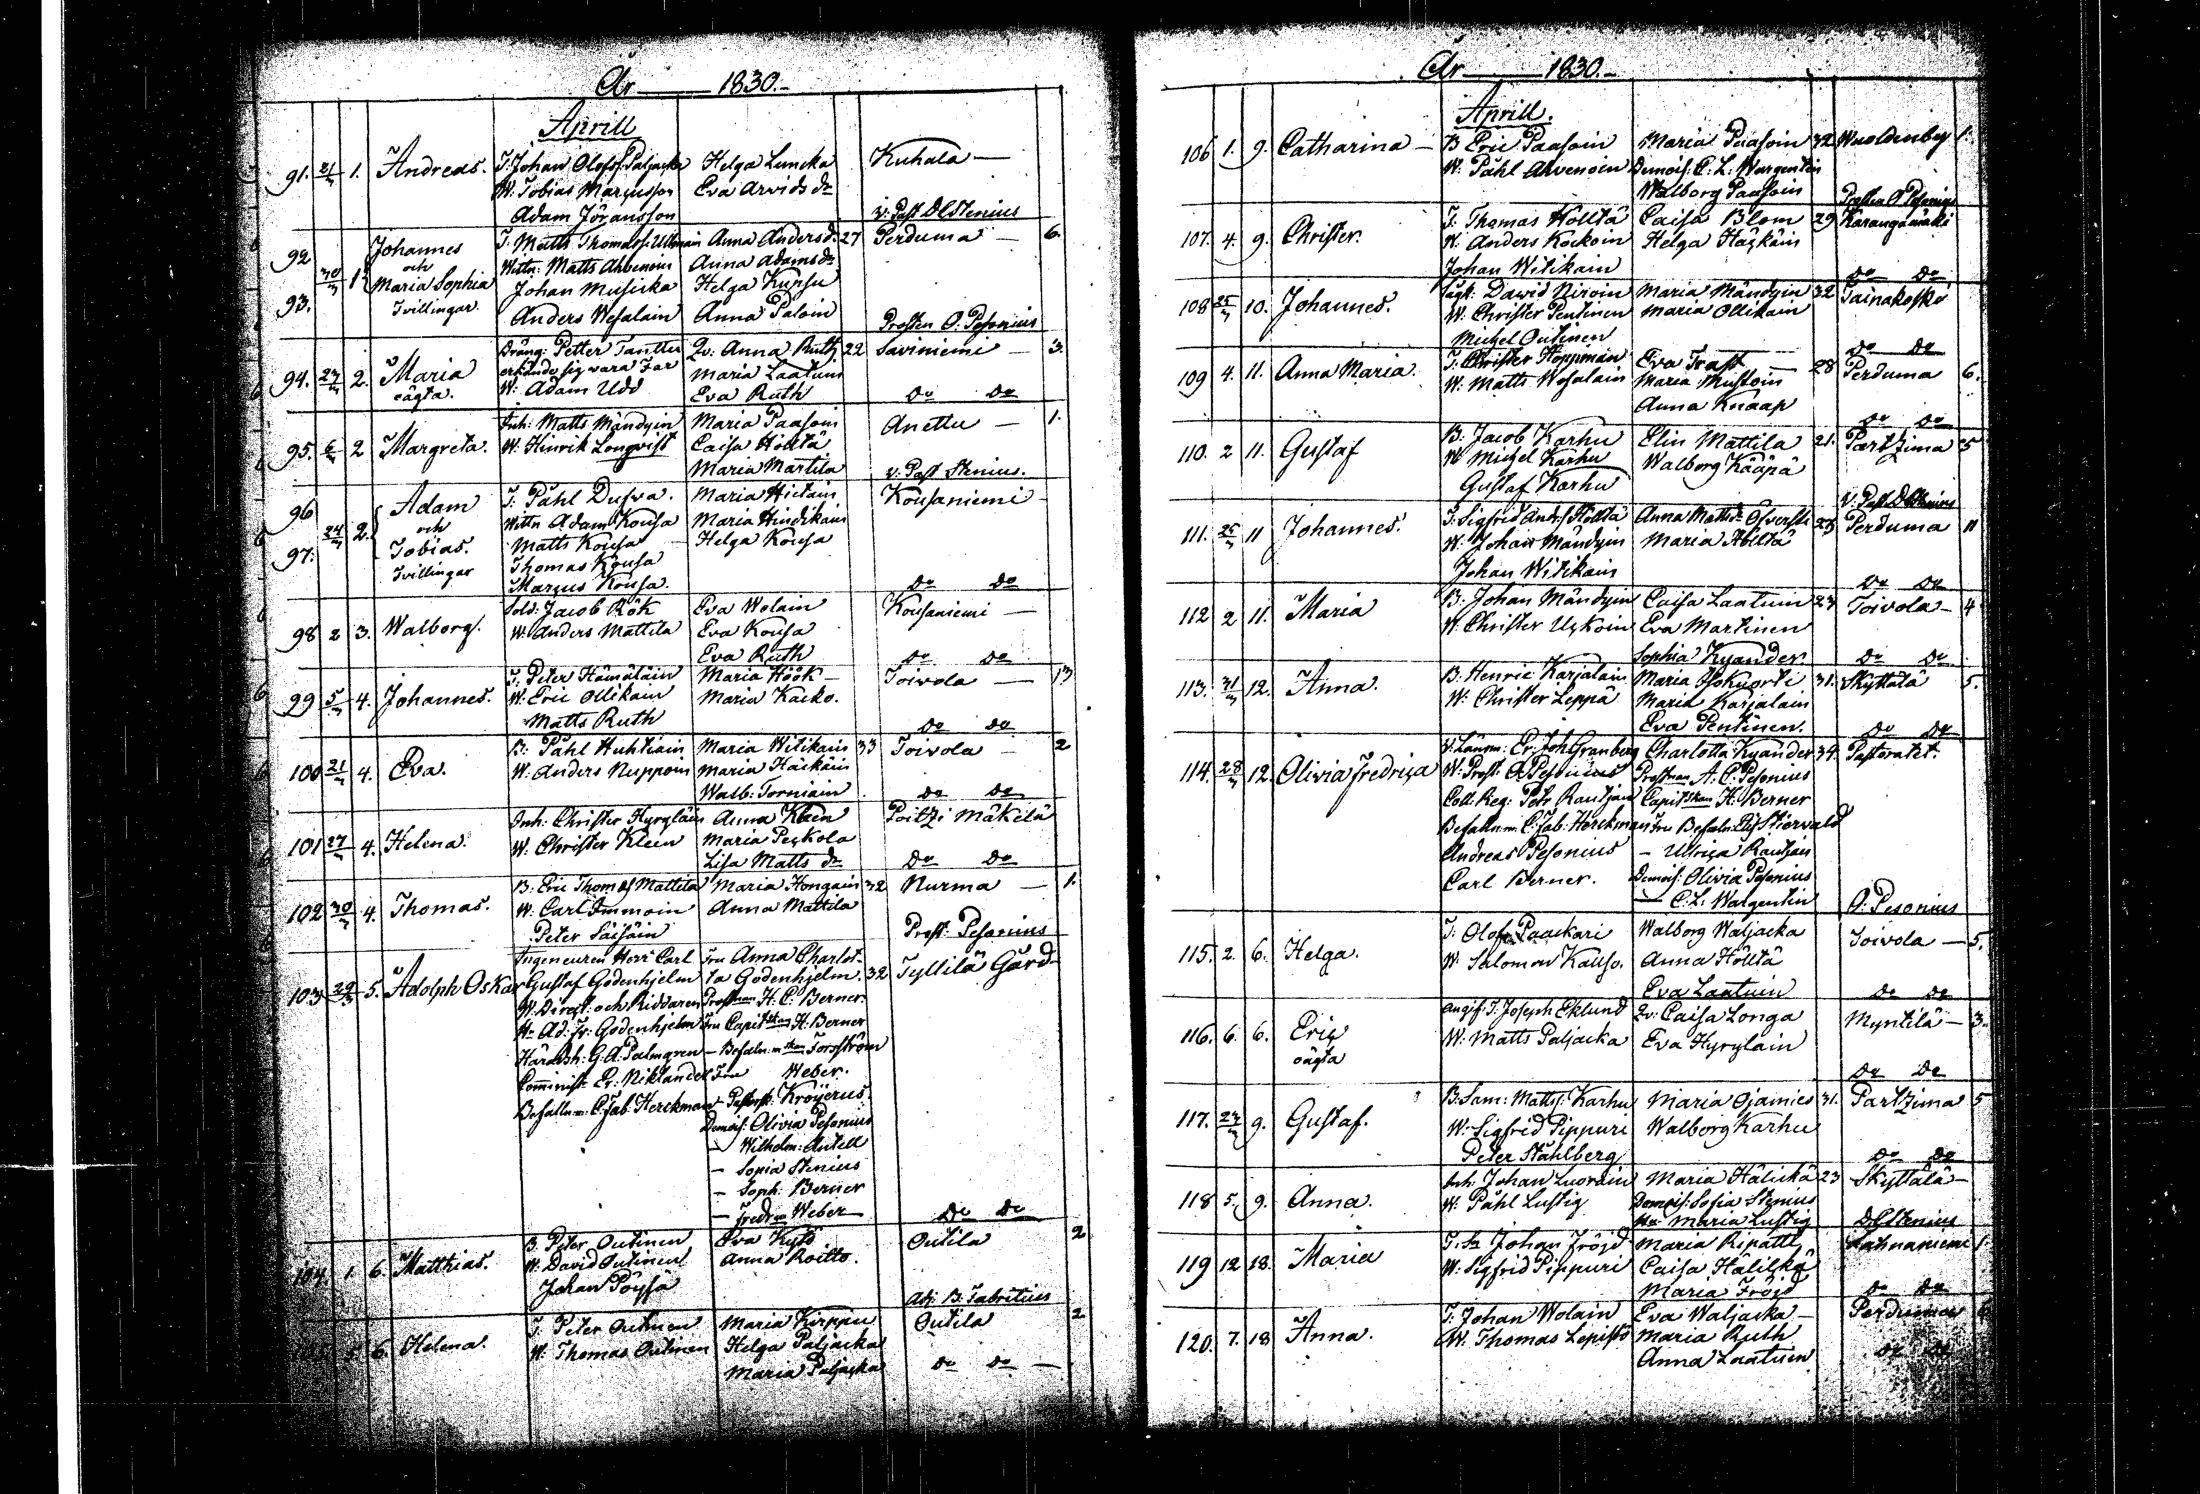 År 1830.
Aprill
91. 21/3 1. Andreas. T. Johan Olofs. Paljacka Helga Luncka Kuhala —
W. Tobias Marcusson Eva Arvids dr
Adam Jöransson v. Past DEStenius
92 Johannes T. Matts Thomas s. Ullmain Anna Andersd. 27 Perduma — 6.
och Wittn: Matts Ahvenoin Anna Adamsdr
30/3 1. Maria Sophia Johan Musicka Helga Kupsu
93. Tvillingar. Anders Wesalain Anna Paloin Prosten O. Pesonius
94. 27/3 2. Maria Dräng: Petter Tanttu Qv: Anna Ruth 22 Saviniemi — 3.
oägta. erkände sig vara Far Maria Laatuin
W. Adam Udd Eva Ruth Do Do
95. 6/3 2 Margreta. Inh: Matts Mändyin Maria Paasoin Anettu — 1.
W. Hinrik Lonqvist Caisa Hölltä
Maria Martila v. Past Stenius.
96 Adam T. Påhl Dufva. Maria Hietain Kousaniemi
24/3 2. och Wittn Adam Kousa Maria Hindikain
97. Tobias. Matts Kousa Helga Kousa
Tvillingar Thomas Kousa
Marcus Kousa. Do Do
98 2 3. Walborg. Sold: Jacob Rök Eva Wolain Kousaniemi —
W. Anders Mattila Eva Kousa
Eva Ruth Do Do
99 5/3 4. Johannes. T. Peter Hämäläin Maria Höök — Toivola — 13
W. Eric Ollikain Maria Kacko.
Matts Ruth Do Do
100 21/3 4. Eva. B: Påhl Huhtiain Maria Witikain 33 Toivola — 2
W. Anders Nuppoin Maria Häckäin
Walb: Torniain Do Do
101 27/3 4. Helena. Inh: Christer Hyryläin Anna Klein Poitzi Mäkelä
W. Christer Klein Maria Peckola
Lisa Matts dr Do Do
102 30/3 4. Thomas. B: Eric Thomas s Mattila Maria Hongain 32 Nurma — 1.
W. Carl Immoin Anna Mattila
Peter Säisäin Prost: Pesonius
103 29/3 5. Adolph Oskar Ingeneuren Herr Carl Fru Anna Charlot-
Gustaf Godenhjelm ta Godenhjelm. 32 Tyllilä Gård
W. Direct. och Riddaren Prostinnan H. C. Berner.
Hr Ad: Fr: Godenhjelm Fru Capitskan H. Berner
Häradsh: G. A. Palmgren — Befalln:m skan Forsström
Comminist: Er: Niklander Fru Weber.
Befalln:m C. Jab: Herckman — Pastorsk: Kröyerus
Demois: Olivia Pesonius
— Wilhelm: Antell
— Sopia Stenius
— Soph: Berner
— Fredr: Weber — Do Do
104. 1. 6. Matthias. B. Peter Outinen Eva Kytö Outila 2
W. David Outinen Anna Roitto.
Johan Pöysä Adj: B. Fabritius
5. 6. Helena. T. Peter Outinen Maria Kirppu Outila 2
W: Thomas Outinen Helga Paljacka
Maria Paljacka Do Do —
År 1830.
Aprill.
106 1. 9. Catharina — B Eric Paasoin Maria Paasoin 32 Wuoldenby 1.
W. Påhl Ahvenoin Demois: C. L. Wargentin
Walborg Paasoin Prosten O Pesonius
107. 4. 9. Christer. T. Thomas Hölltä Caisa Blom 29 Karangamäki
W. Anders Kockoin Helga Häckäin
Johan Witikain Do Do
108 25/3 10. Johannes. Dawid Niroin Maria Mändyin 32 Tainakoski
W. Christer Pentinen Maria Ollikain
Michel Outinen Do Do
109 4. 11. Anna Maria. T. Christer Hoppman Eva Trast — 28 Perduma 6.
W. Matts Wesalain Maria Mustoin
Anna Knaap Do Do
110. 2 11. Gustaf B: Jacob Karhu Elin Mattila 21. Partzima 5
W Michel Karhu Walborg Kääpä
Gustaf Karhu V. Past DEStenius
111. 25/3 11 Johannes. T. Sigfrid Ands s Hölltä Anna Mattsdr Ofversti 23 Perduma 11
W. Johan Mändyin Maria Hölltä
Johan Witikain Do Do
112 2 11. Maria B: Johan Mändyin Caisa Laatuin 23 Toivola — 4
W. Christer Uckoin Eva Martinen
Sophia Kyander. Do Do
113. 31/3 12. Anna. B. Henric Karjalain Maria Isokuorti 31. Skyttälä 5.
W: Christer Leppä Maria Karjalain
Eva Pentinen. Do Do
114. 28/3 12. Olivia Fredrica V: Länsm: Er. Joh Granberg Charlotta Kyander 34. Pastoratet.
W: Prost: O Pesonius Prostinnan A. C. Pesonius
Coll: Reg: Petr Rautjan Capitskan H: Berner
Befalln:m C: Jab: Herckman Fru Befaln: Stiervald
Andreas Pesonius — Ulrica Rautjan
Carl Berner. Demois: Olivia Pesonius
— C. L. Wargentin O. Pesonius
115. 2. 6. Helga. T: Olof Paackari Walborg Waljacka Toivola — 5.
W. Salomon Kauso. Anna Hölltä
Eva Laatuin Do Do
116. 6. 6. Eric angif. T. Joseph Eklund Qv: Caisa Longa Myntilä — 3.
oägta W. Matts Paljacka Eva Hyryläin
Do Do
117. 23/3 9. Gustaf. B. Sam: Matts s. Karhu Maria Ojamies 31. Partzima 5
W: Sigfrid Pippuri Walborg Karhu
Peter Ståhlberg Do Do
118 5. 9. Anna. Inh: Johan Luorain Maria Hälickä 23 Skyttälä —
W. Påhl Lustig Demois: Sofia Stenius
Maria Lustig DEStenius
119 12 18. Maria T. Johan Fröjd Maria Ripatti Lahnaniemi 1.
W: Sigfrid Pippuri Caisa Hälickä
Maria Fröjd Do Do
120. 7. 18 Anna. T. Johan Wolain Eva Waljacka — Perduma 6
W. Thomas Lepistö Maria Ruth
Anna Laatuin Do Do